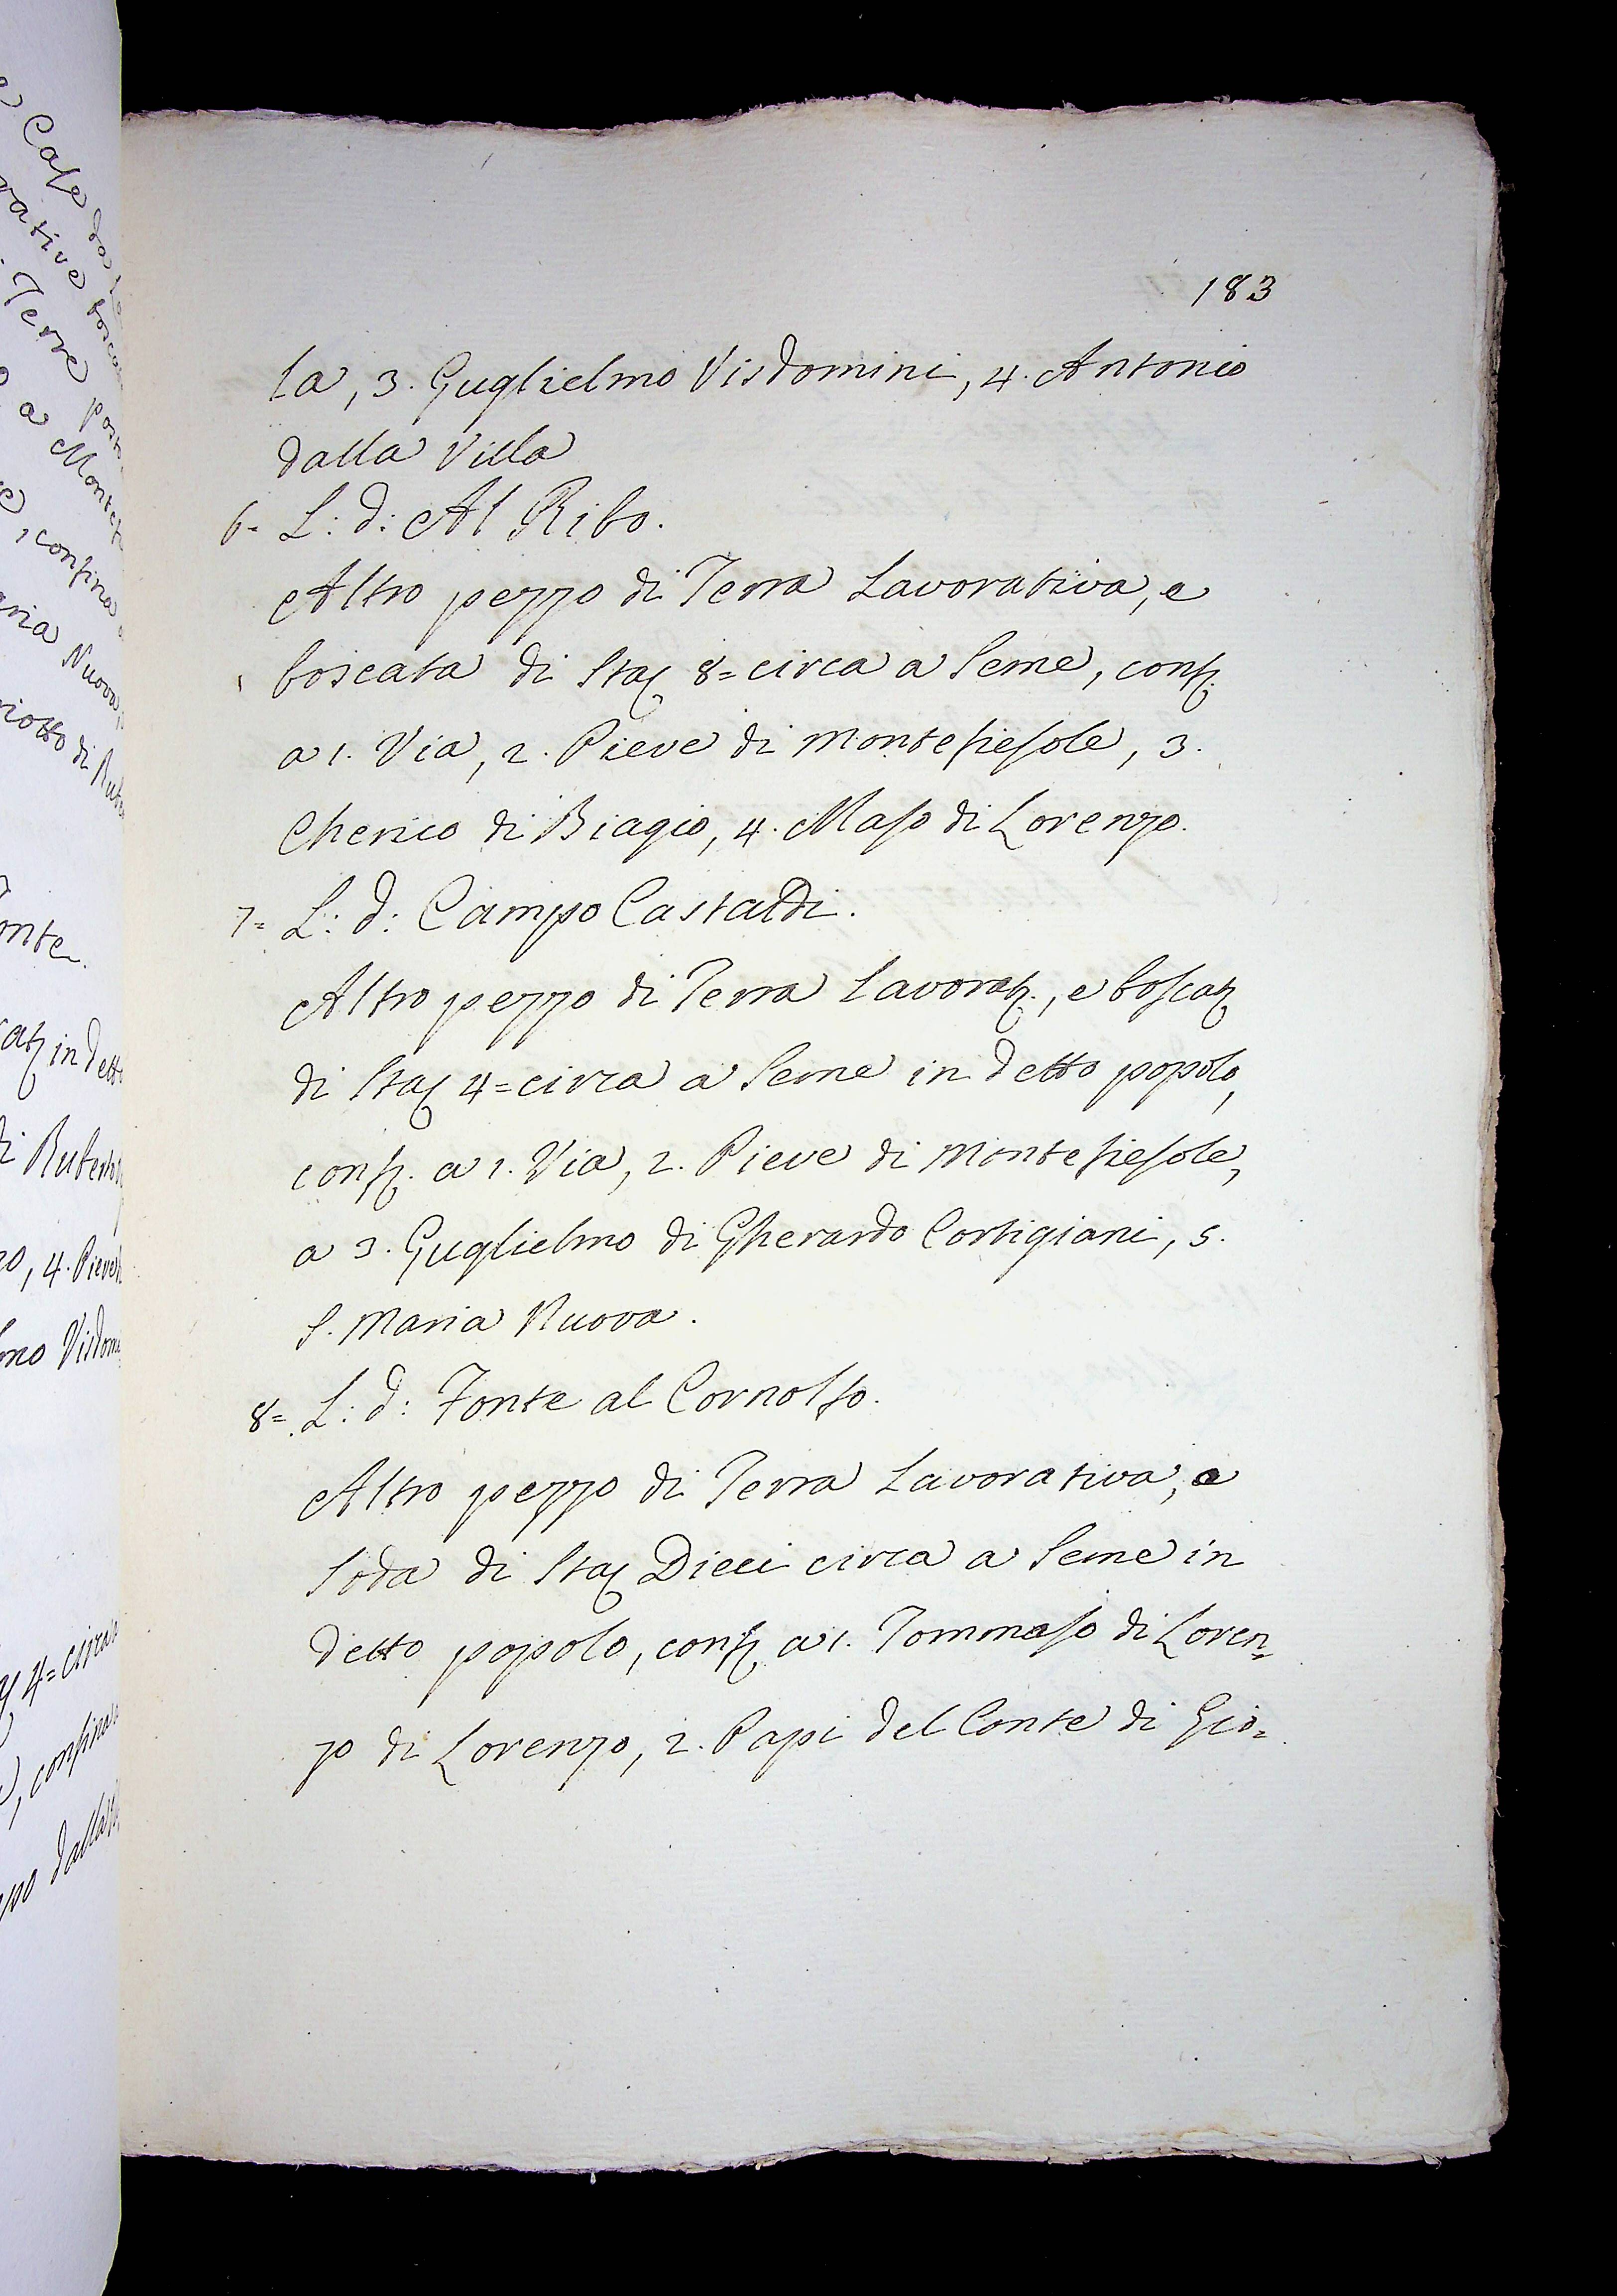 183
la, 3. Guglielmo Visdomini, 4. Antonio
dalla Villa
6= L: d: Al Ribo.
Altro pezzo di Terra Lavorativa, e
boscata di Sta: 8= circa a Seme, conf:
a 1. Via, 2. Pieve di Montefiesole, 3.
Cherico di Biagio, 4. Maso di Lorenzo.
7= L: d: Campo Castaldi.
Altro pezzo di Terra Lavorat:, e boscat:
di Sta: 4= circa a Seme in detto popolo,
conf: a 1. Via, 2. Pieve di Montefiesole,
a 3. Guglielmo di Gherardo Cortigiani, 5.
S. Maria Nuova.
8= L: d: Fonte al Cornolso.
Altro pezzo di Terra Lavorativa, e
soda di Sta: Dieci circa a Seme in
detto popolo, conf: a 1. Tommaso di Loren=
zo di Lorenzo, 2. Papi del Conte di Gio=